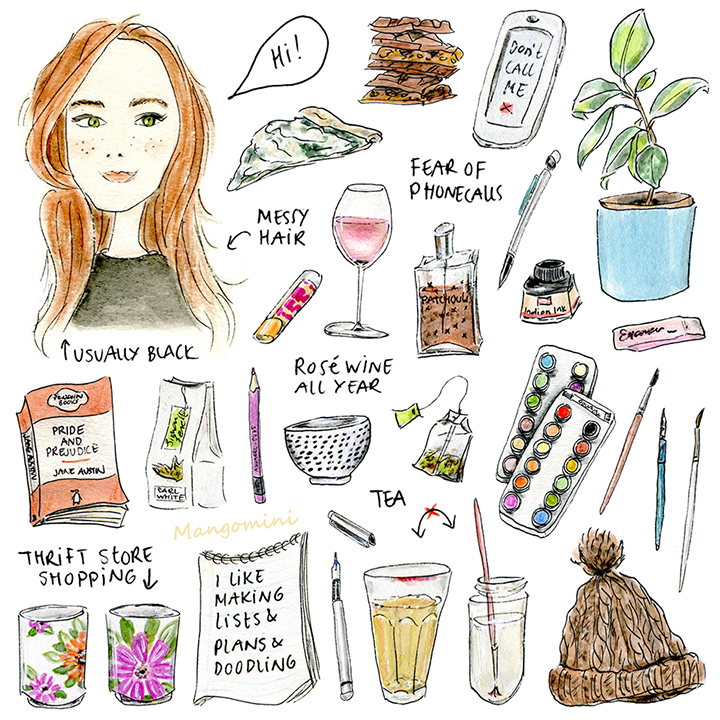 Hi!
DON'T
CALL
ME
FEAR OF
PHONECALLS
MESSY
HAIR
PATCHOULI
Indian Ink
USUALLY BLACK
ROSÉ WINE
ALL YEAR
PENGUIN
BOOKS
PRIDE
AND
PREJUDICE
JANE AUSTIN
JANE AUSTIN
EARL
WHITE
TEA
Mangomini
THRIFT STORE
SHOPPING
I LIKE
MAKING
LISTS &
PLANS &
DOODLING